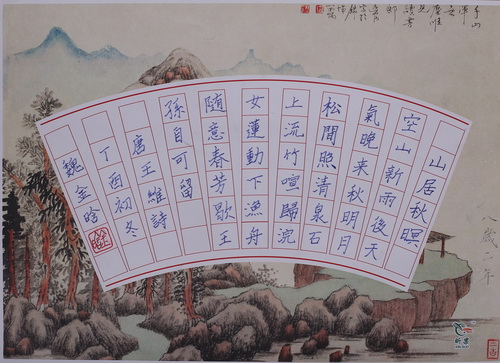 山居秋暝
空山新雨後天
氣晚来秋明月
松間照清泉石
上流竹喧歸浣
女蓮動下漁舟
随意春芳歇王
孫自可留
唐王維詩
丁酉初冬
魏金晗